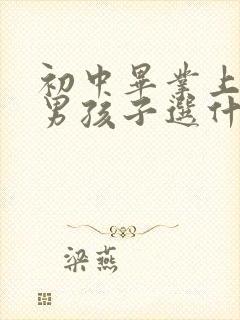 初中畢業上
男孩子選什
梁燕